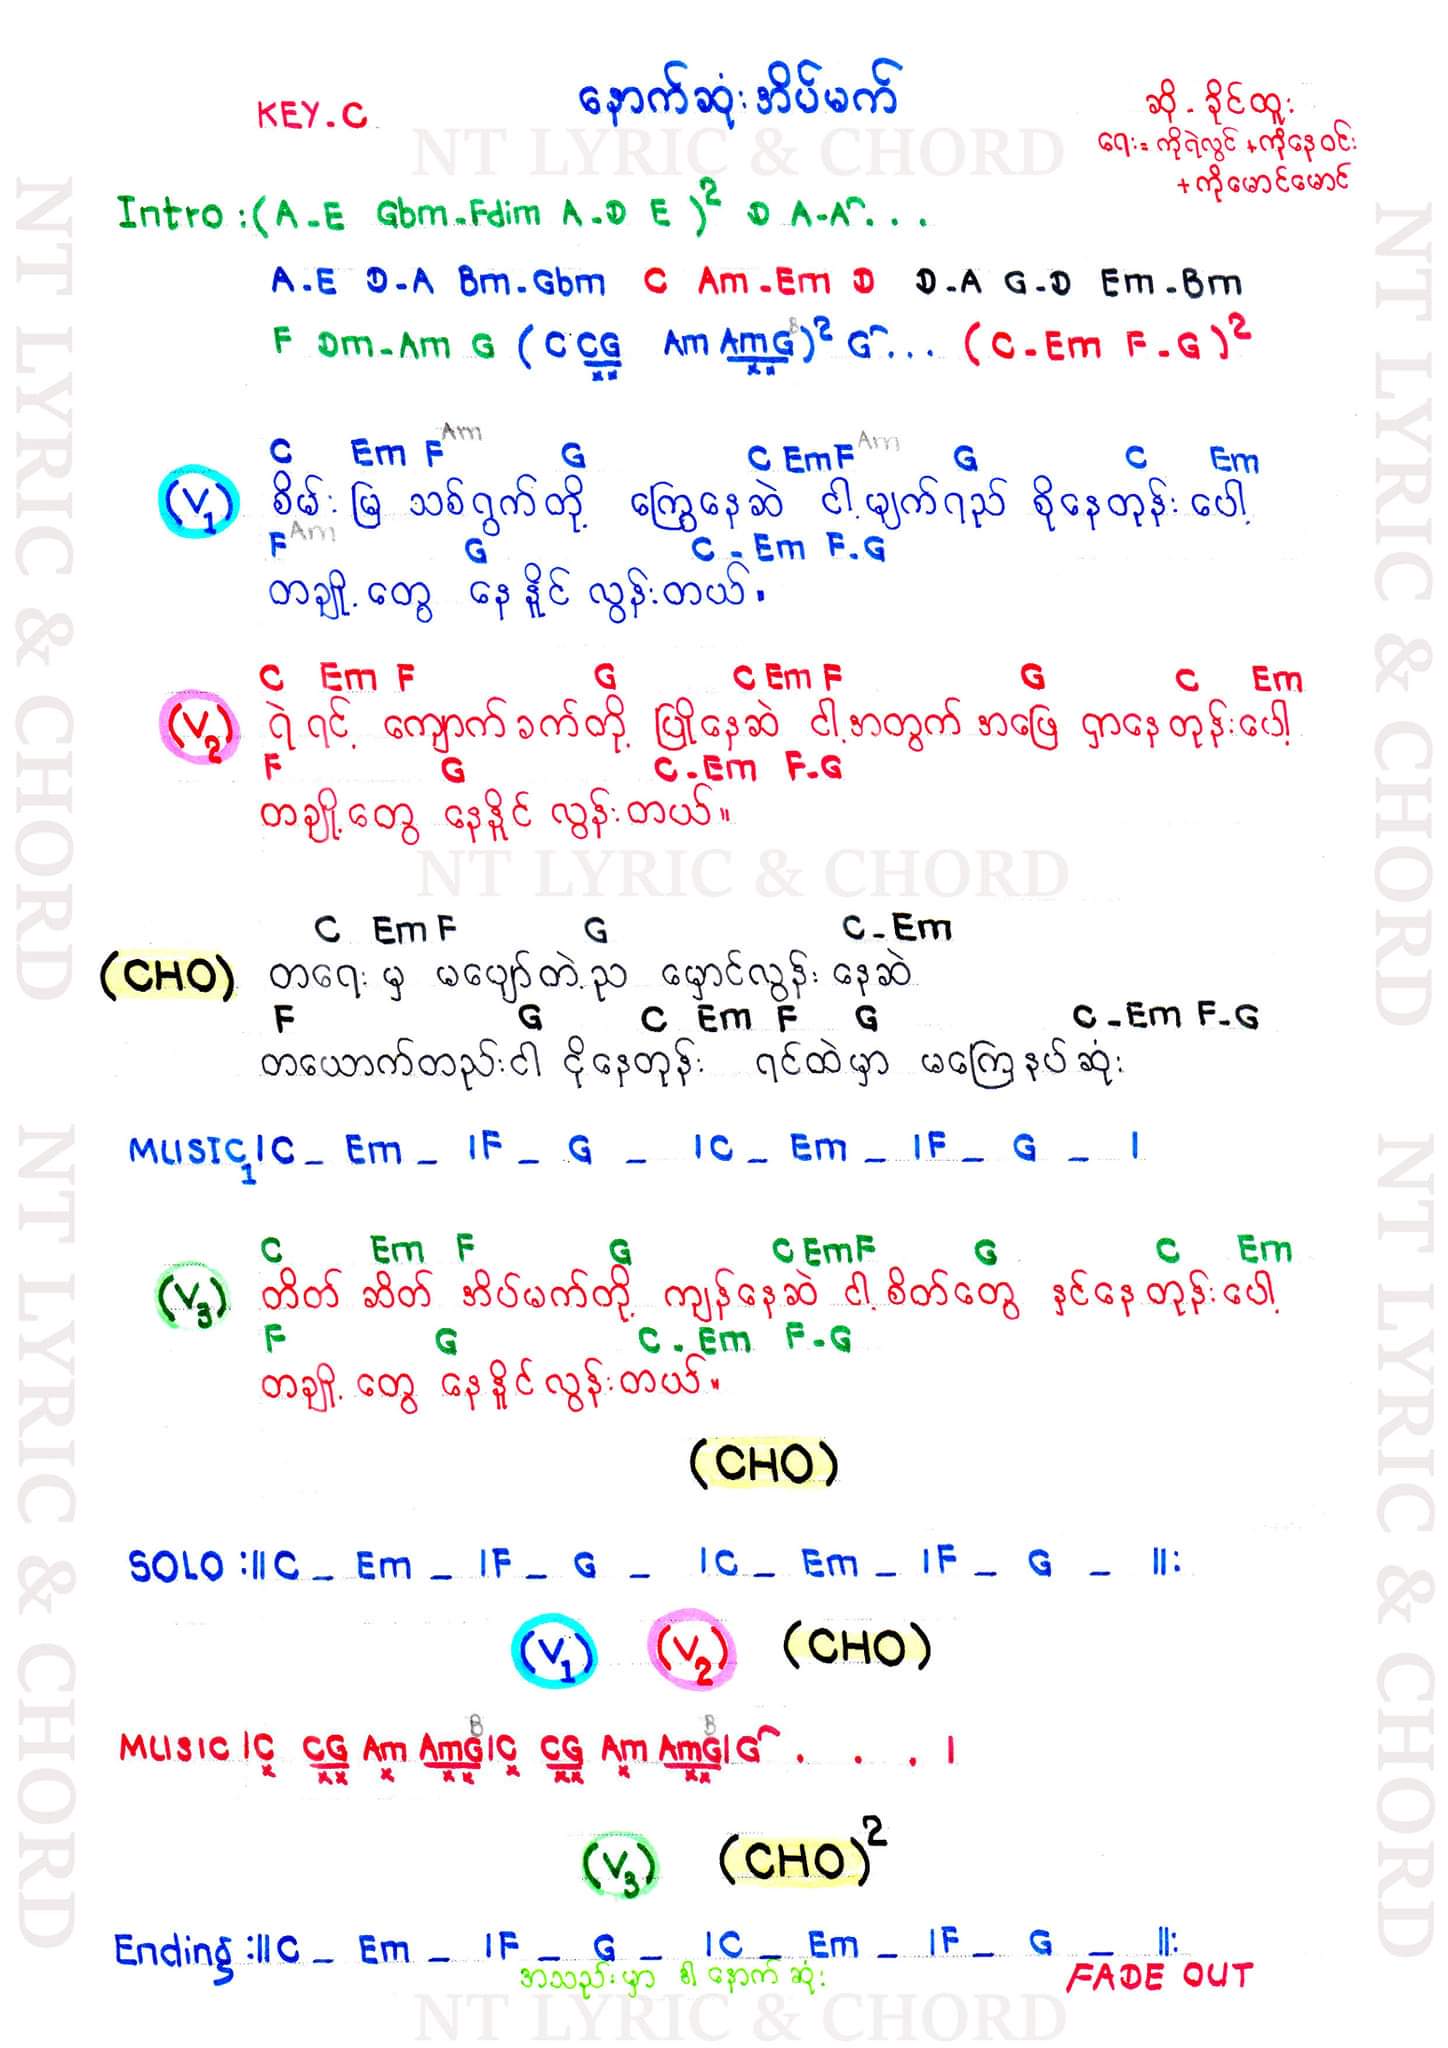 နောက်ဆုံးအိပ်မက်
KEY-C
ဆို - ခိုင်ထူး
ရေး = ကိုရဲလွင် + ကိုနေဝင်း
+ ကိုမောင်မောင်
NT LYRIC & CHORD
Intro : (A-E Gbm-Fdim A-D E)² D A-A...
A-E D-A Bm-Gbm C Am-Em D D-A G-D Em-Bm
F Dm-Am G (C CG Am AmG B)² G... (C-Em F-G)²
C Em F Am G C Em F Am G C Em
(V1) စိမ်းမြ သစ်ရွက်တို့ ကြွေနေဆဲ ငါ့မျက်ရည် စိုနေတုန်းပေါ့
F Am G C-Em F-G
တချို့တွေ နေနိူင်လွန်းတယ်။
C Em F G C Em F G C Em
(V2) ရဲရင့် ကျောက်ခက်တို့ ပြိုနေဆဲ ငါ့အတွက် အဖြေ ရှာနေတုန်းပေါ့
F G C-Em F-G
တချို့တွေ နေနိူင်လွန်းတယ်။
NT LYRIC & CHORD
C Em F G C-Em
(CHO) တရေးမှ မပျော်တဲ့ည မှောင်လွန်းနေဆဲ
F G C Em F G C-Em F-G
တယောက်တည်းငါ ငိုနေတုန်း ရင်ထဲမှာ မကြေနပ်ဆုံး
MUSIC1 |C _ Em _ |F _ G _ |C _ Em _ |F _ G _ |
C Em F G C Em F G C Em
(V3) တိတ်ဆိတ် အိပ်မက်တို့ ကျန်နေဆဲ ငါ့စိတ်တွေ နှင်နေတုန်းပေါ့
F G C-Em F-G
တချို့တွေ နေနိူင်လွန်းတယ်။
(CHO)
SOLO :||C _ Em _ |F _ G _ |C _ Em _ |F _ G _ ||:
(V1) (V2) (CHO)
MUSIC |C CG Am AmG B |C CG Am AmG B |G . . . |
(V3) (CHO)²
Ending :||C _ Em _ |F _ G _ |C _ Em _ |F _ G _ ||:
အသည်းမှာ ဒါနောက်ဆုံး
FADE OUT
NT LYRIC & CHORD
NT LYRIC & CHORD
NT LYRIC & CHORD
NT LYRIC & CHORD
NT LYRIC & CHORD